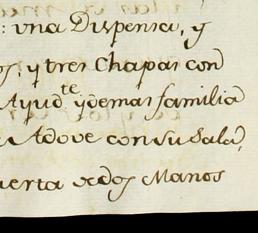 : una Dispensa, y
os, y tres Chapas con
Ayud.te y demas familia
Adove con su Sala,
uerta de dos Manos